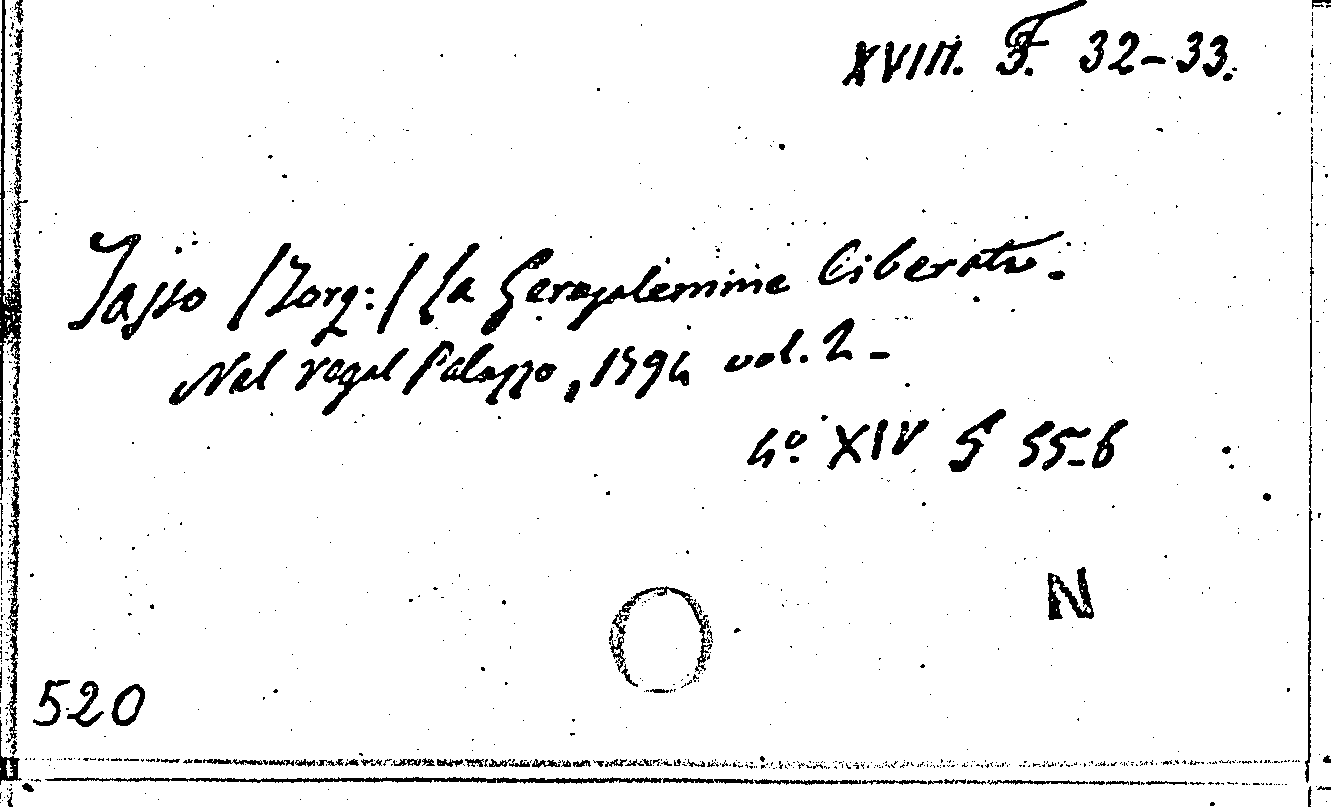 XVIII. F. 32-33.
Tasso /Torq:/ La Gerusalemme liberata.
Nel regal Palazzo, 1794 vol. 2-
4º XIV 55-6
N
520